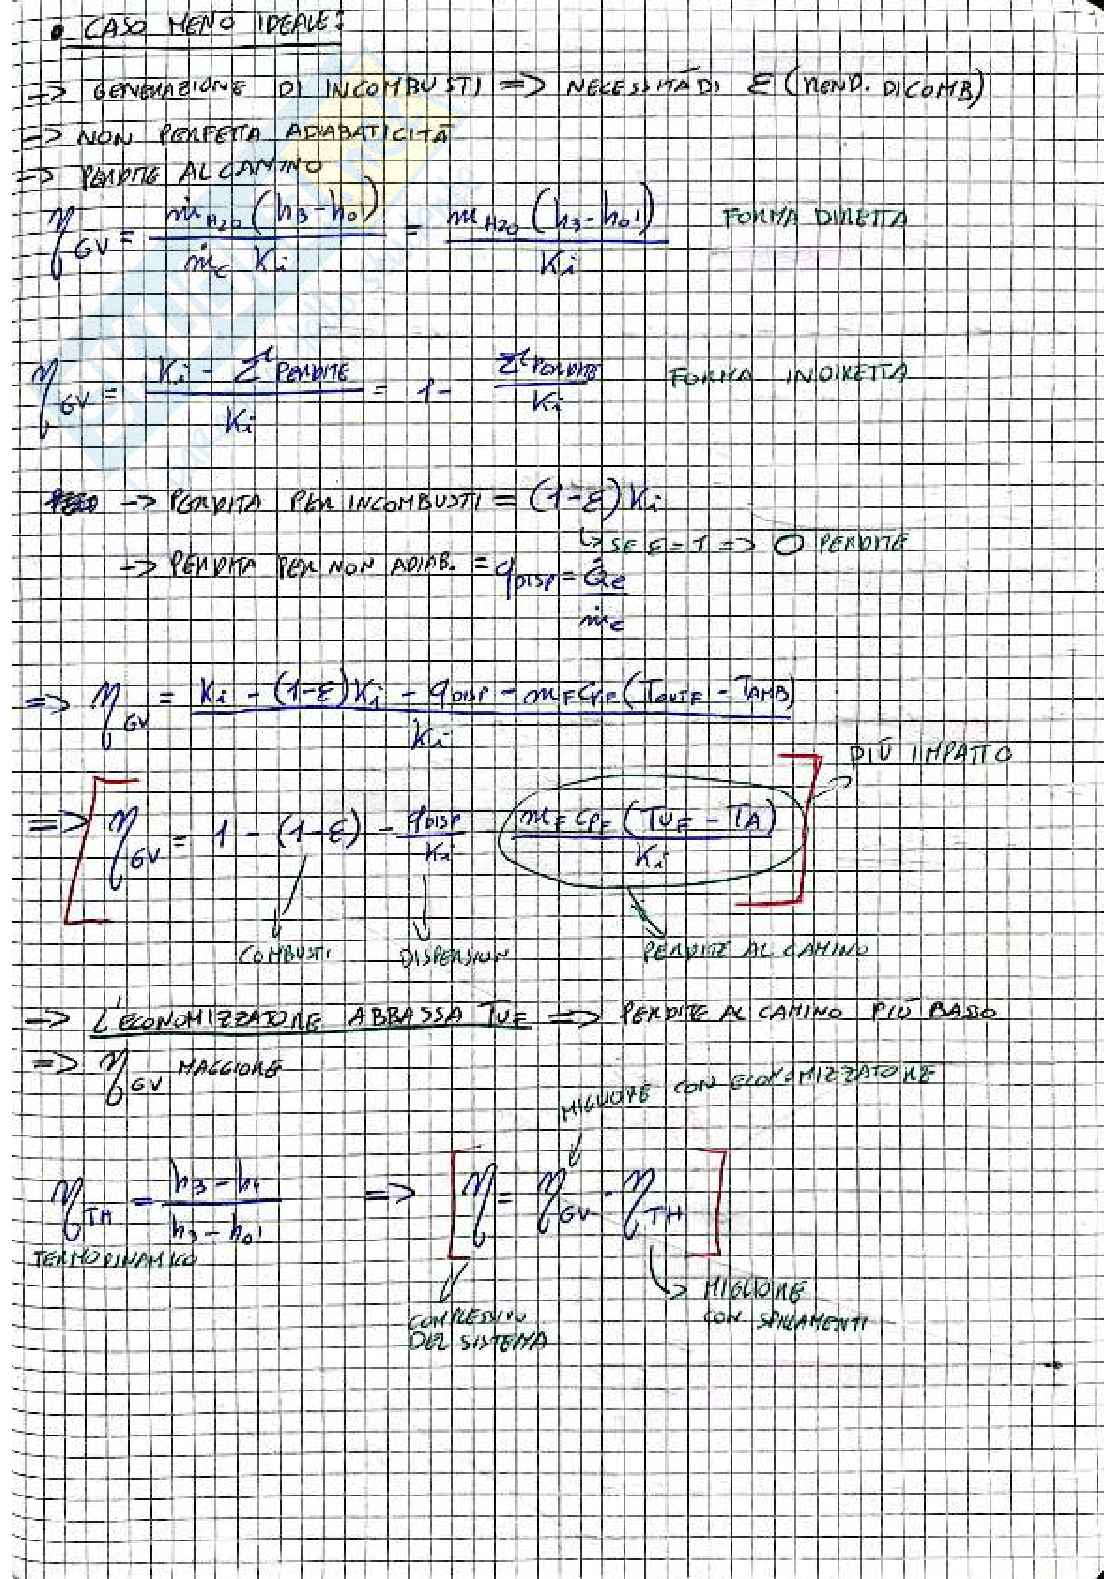 • CASO MENO IDEALE:
=> GENERAZIONE DI INCOMBUSTI => NECESSITÀ DI ε (REND. DI COMB)
=> NON PERFETTA ADIABATICITÀ
=> PERDITE AL CAMINO
η_GV = ṁ_H2O (h3 - h0') / ṁc Ki = m_H2O (h3 - h0') / Ki FORMA DIRETTA
η_GV = Ki - Σ PERDITE / Ki = 1 - Σ PERDITE / Ki FORMA INDIRETTA
-> PERDITA PER INCOMBUSTI = (1-ε) Ki
↳ SE ε = 1 => 0 PERDITE
-> PERDITA PER NON ADIAB. = q_DISP = Q̇e / ṁc
=> η_GV = Ki - (1-ε) Ki - q_DISP - m_F c_PF (T_OUTF - T_AMB) / Ki
PIÙ IMPATTO
=> η_GV = 1 - (1-ε) - q_DISP / Ki - m_F c_PF (T_UF - T_A) / Ki
COMBUSTI DISPERSIONI PERDITE AL CAMINO
=> L'ECONOMIZZATORE ABBASSA TUF => PERDITE AL CAMINO PIÙ BASSO
=> η_GV MAGGIORE
MIGLIORE CON ECONOMIZZATORE
η_TH = h3 - h4 / h3 - h0' => η = η_GV · η_TH
TERMODINAMICO
COMPLESSIVO
DEL SISTEMA
MIGLIORE
CON SPILLAMENTI